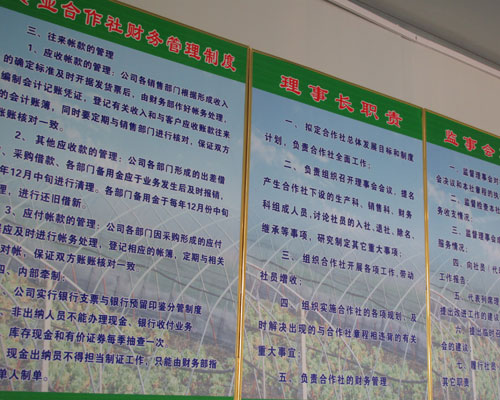 业合作社财务管理制度
三、往来帐款的管理
1、应收帐款的管理：公司各销售部门根据形成收入
的确定标准及时开据发货票后，由财务部作好帐务处理，
编制会计记账凭证，登记有关收入和与客户应收账款往来
的会计账簿，同时要定期与销售部门进行核对，保证双方
账账核对一致。
2、其他应收款的管理：公司各部门形成的出差借
、采购借款、各部门备用金应于业务发生后及时报销，
每年12月中旬进行清理。各部门备用金于每年12月份中旬
理，进行还旧借新。
3、应付帐款的管理：公司各部门因采购形成的应付
应及时进行帐务处理，登记相应的帐簿，定期与相关
对帐，保证双方账账核对一致
四、内部牵制：
公司实行银行支票与银行预留印鉴分管制度
非出纳人员不能办理现金、银行收付业务
库存现金和有价证券每季抽查一次
现金出纳员不得担当制证工作，只能由财务部指
单人制单。
理事长职责
一、拟定合作社总体发展目标和制度
计划，负责合作社全面工作；
二、负责组织召开理事会会议，提名
产生合作社下设的生产科、销售科、财务
科组成人员，讨论社员的入社、退社、除名、
继承等事项，研究制定其它重大事项；
三、组织合作社开展各项工作，带动
社员增收；
四、组织实施合作社的各项规划，及
时解决出现的与合作社章程相违背的有关
重大事宜；
五、负责合作社的财务管理。
监事会
一、监督理事会对
会决议和本社章程的执
二、监督检查本
务收支情况；
三、监督理事会
服务情况；
四、向社员（
工作报告；
五、代表列席
提出改进工作的建议
六、提出临时召
会的建议；
七、履行社员
其它职责